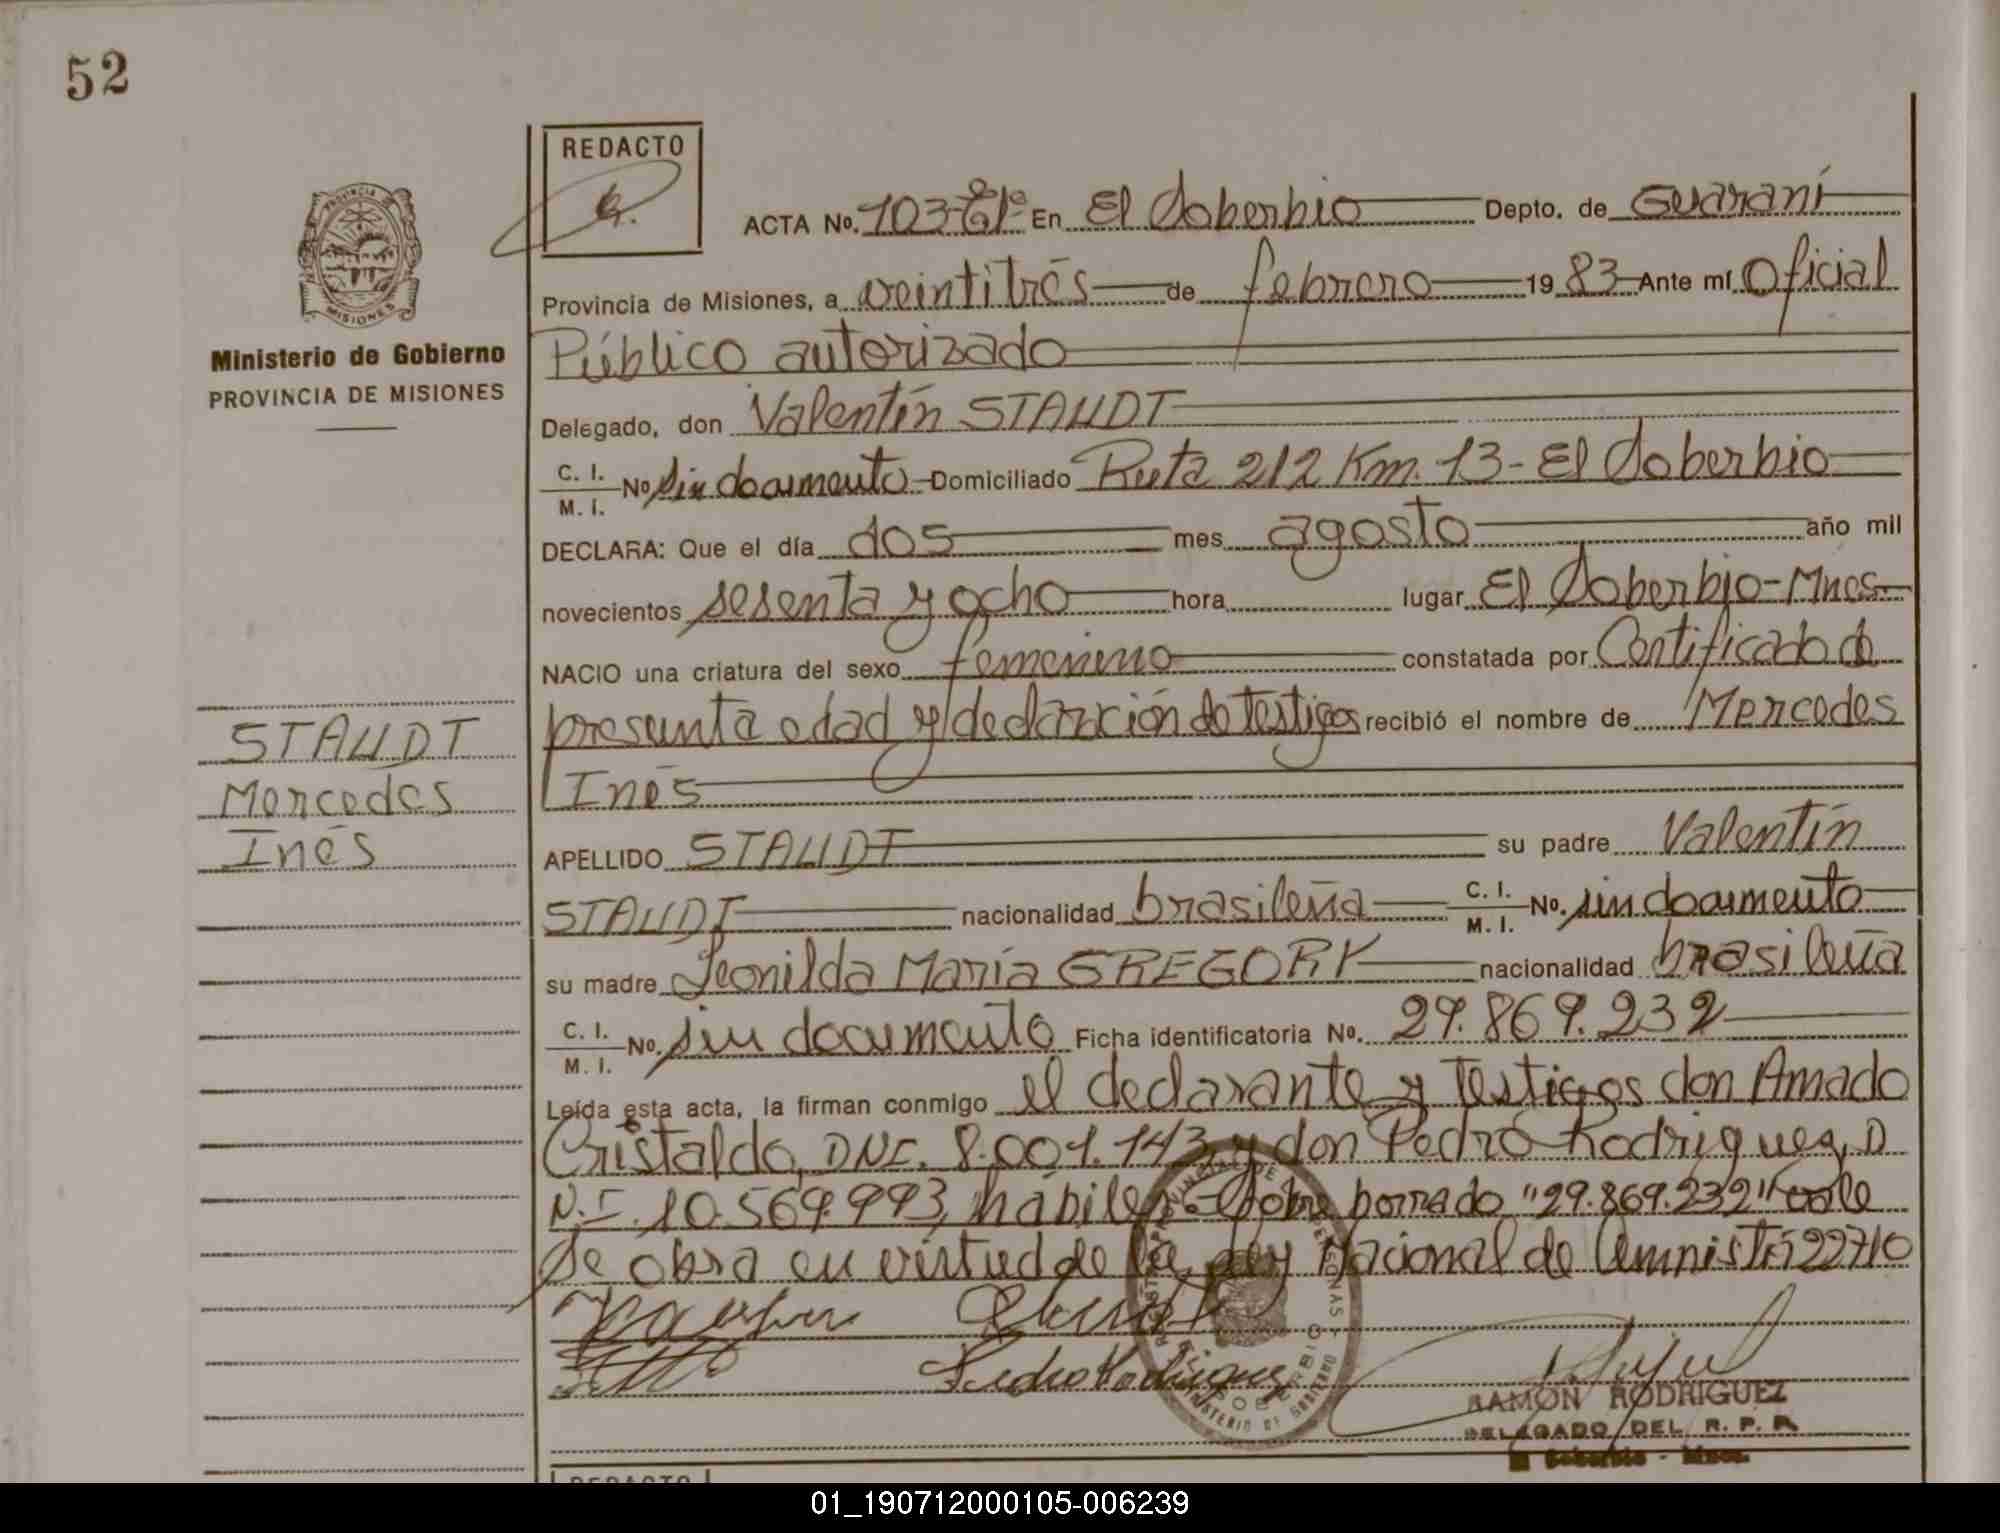 52
REDACTO
PROVINCIA DE
MISIONES
Ministerio de Gobierno
PROVINCIA DE MISIONES
ACTA Nº. 103-Tº1º En El Soberbio Depto. de Guaraní
Provincia de Misiones, a veintitrés de febrero 1983 Ante mí Oficial
Público autorizado
Delegado, don Valentín STAUDT
C. I. / M. I. Nº sin documento Domiciliado Ruta 212 Km. 13 - El Soberbio
DECLARA: Que el día dos mes agosto año mil
novecientos sesenta y ocho hora lugar El Soberbio-Mnes
NACIO una criatura del sexo femenino constatada por Certificado de
presunta edad y declaración de testigos recibió el nombre de Mercedes
Inés
STAUDT
Mercedes
Inés
APELLIDO STAUDT su padre Valentín
STAUDT nacionalidad brasileña C. I. / M. I. Nº. sin documento
su madre Leonilda María GREGORY nacionalidad brasileña
C. I. / M. I. Nº. sin documento Ficha identificatoria Nº. 29.869.232
Leída esta acta, la firman conmigo el declarante y testigos don Amado
Cristaldo, DNI. 8.001.143 y don Pedro Rodriguez, D.
N.I. 10.569.993, hábiles.- Sobre borrado "29.869.232" vale
Se obra en virtud de la Ley Nacional de Amnistía 22710
Pedro Rodriguez
RAMON RODRIGUEZ
DELEGADO DEL R. P. P.
El Soberbio - Mnes.
REDACTO
01_190712000105-006239